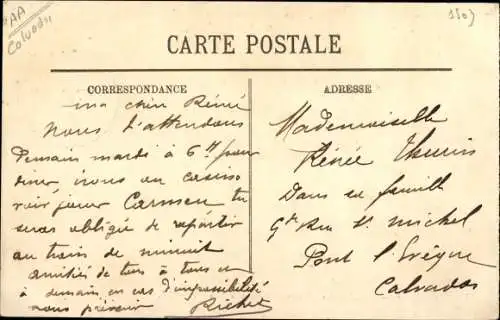 AA
Calvados
1503
CARTE POSTALE
CORRESPONDANCE
ma chère Rénée
Nous t'attendons
Demain mardi à 6H pour
diner, irons au casino
voir jouer Carmen tu
seras obligée de repartir
au train de minuit
amitiés de tous à tous et
à demain en cas d'impossibilité
nous prévenir Richet
ADRESSE
Mademoiselle
Rénée
Dans sa famille
Gde Rue St michel
Pont l'Evêque
Calvados